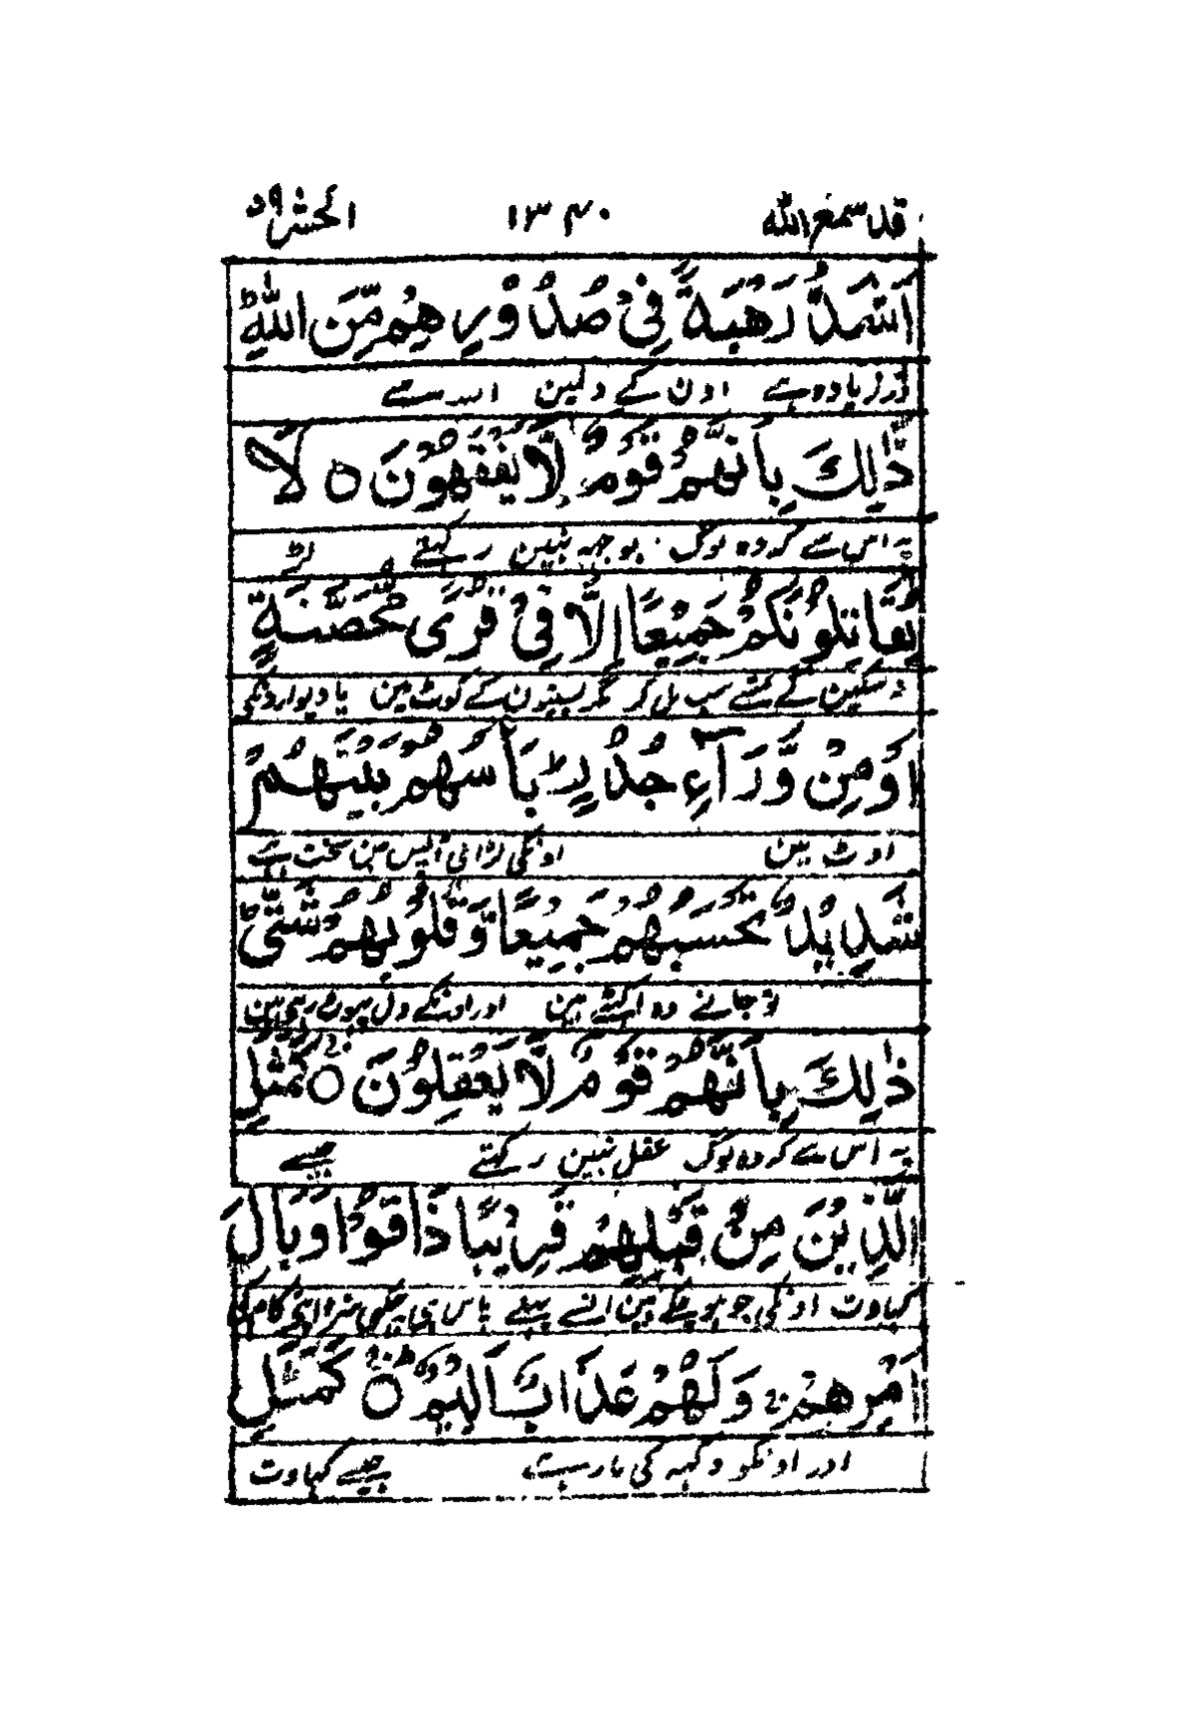 قد سمع الله ۱۳۴۰ الحشر ۵۹
اَشَدُّ رَهْبَةً فِیْ صُدُوْرِهِمْ مِّنَ اللهِ ؕ
ڈر زیادہ ہے اون کے دلمین اللہ سے
ذٰلِكَ بِاَنَّهُمْ قَوْمٌ لَّا یَفْقَهُوْنَ ○ لَا
یہ اس سے کہ وہ لوگ بوجہہ نہین رکہتے لڑ
یُقَاتِلُوْنَكُمْ جَمِیْعًا اِلَّا فِیْ قُرًی مُّحَصَّنَةٍ
نہ سکین گے تمسے سب مل کر مگر بستیون کے کوٹ مین یا دیوارونکی
اَوْ مِنْ وَّرَآءِ جُدُرٍ ؕ بَاْسُهُمْ بَیْنَهُمْ
اوٹ مین اونکی لڑائی آپس مین سخت ہے
شَدِیْدٌ ؕ تَحْسَبُهُمْ جَمِیْعًا وَّقُلُوْبُهُمْ شَتّٰی ؕ
تو جانے وہ اکہٹے ہین اور اونکے دل پہوٹ رہی ہین
ذٰلِكَ بِاَنَّهُمْ قَوْمٌ لَّا یَعْقِلُوْنَ ○ كَمَثَلِ
یہ اس سے کہ وہ لوگ عقل نہین رکہتے جیسے
الَّذِیْنَ مِنْ قَبْلِهِمْ قَرِیْبًا ذَاقُوْا وَبَالَ
کہاوت اونکی جو ہو چکے ہین انسے پہلے پاس ہی چکہی سزا اپنے کام کی
اَمْرِهِمْ ۚ وَلَهُمْ عَذَابٌ اَلِیْمٌ ○ كَمَثَلِ
اور اونکو دکہہ کی مار ہے جیسے کہاوت